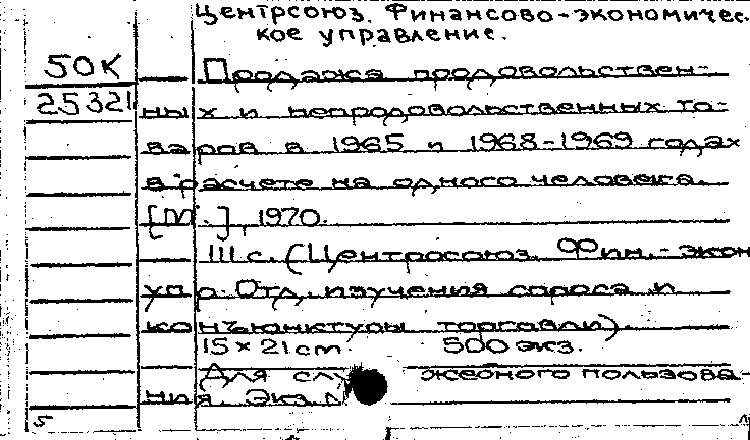 Центрсоюз. Финансово-экономичес-
кое управление.
50К
25321
Продажа продовольствен-
ных и непродовольственных то-
варов в 1965 и 1968-1969 годах
в расчете на одного человека.
[М.], 1970.
111 с. (Центросоюз. Фин.-экон
упр. Отд. изучения спроса и
конъюнктуры торговли).
15 × 21 cm. 500 экз.
Для служебного пользова-
ния. Экз.
5